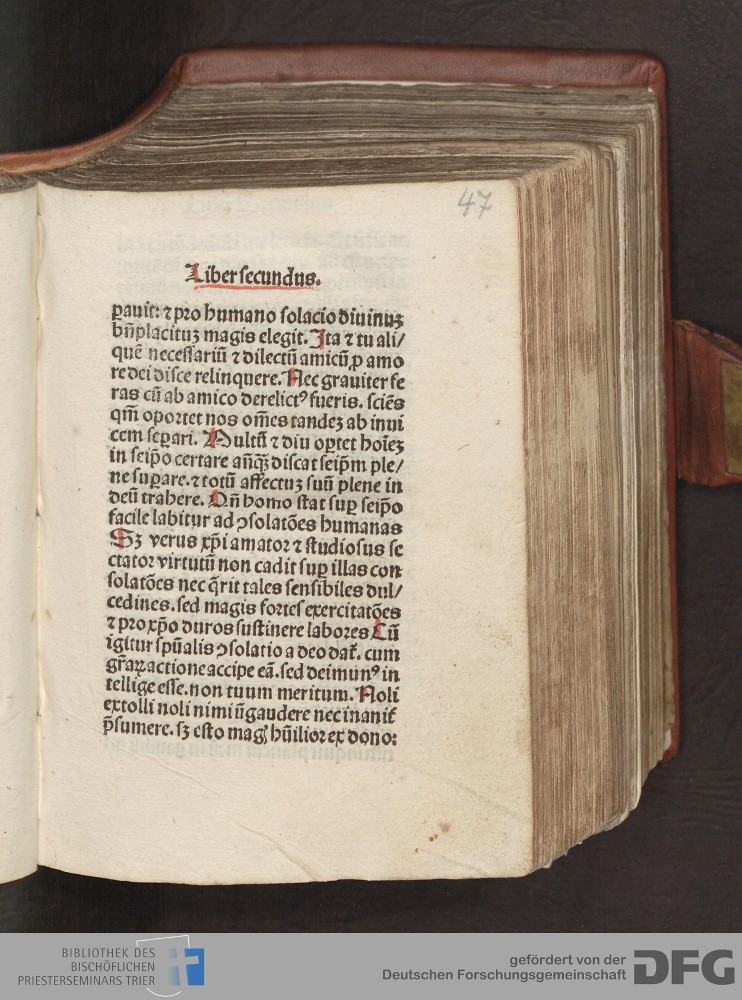 47
Liber secundus.
ꝑauit: ⁊ pro humano solacio diuinuȝ
bn̄placituȝ magis elegit. Ita ⁊ tu ali/
quē necessariū ⁊ dilectū amicū ꝓ amo
re dei disce relinquere. Nec grauiter fe
ras cū ab amico derelictꝰ fueris. sciēs
qm̄ oportet nos om̄es tandeȝ ab inui
cem seꝑari. Multū ⁊ diu oꝑtet hoīeȝ
in seip̄o certare an̄qȝ̄ discat seip̄m ple/
ne suꝑare. ⁊ totū affectuȝ suū plene in
deū trahere. Qn̄ homo stat suꝑ seip̄o
facile labitur ad ꝯsolatōes humanas
Sȝ verus xp̄i amator ⁊ studiosus se
ctator virtutū non cadit suꝑ illas con
solatōes nec q̄rit tales sensibiles dul/
cedines. sed magis fortes exercitatōes
⁊ pro xp̄o duros sustinere labores Cū
igitur sp̄ualis ꝯsolatio a deo dat̄. cum
gr̄aꝝ actione accipe eā. sed dei munꝰ in
tellige esse. non tuum meritum. Noli
extolli noli nimiū gaudere nec inanit̄
p̄sumere. sȝ esto mag̕ hūilior ex dono:
BIBLIOTHEK DES
BISCHÖFLICHEN
PRIESTERSEMINARS TRIER
gefördert von der
Deutschen Forschungsgemeinschaft
DFG